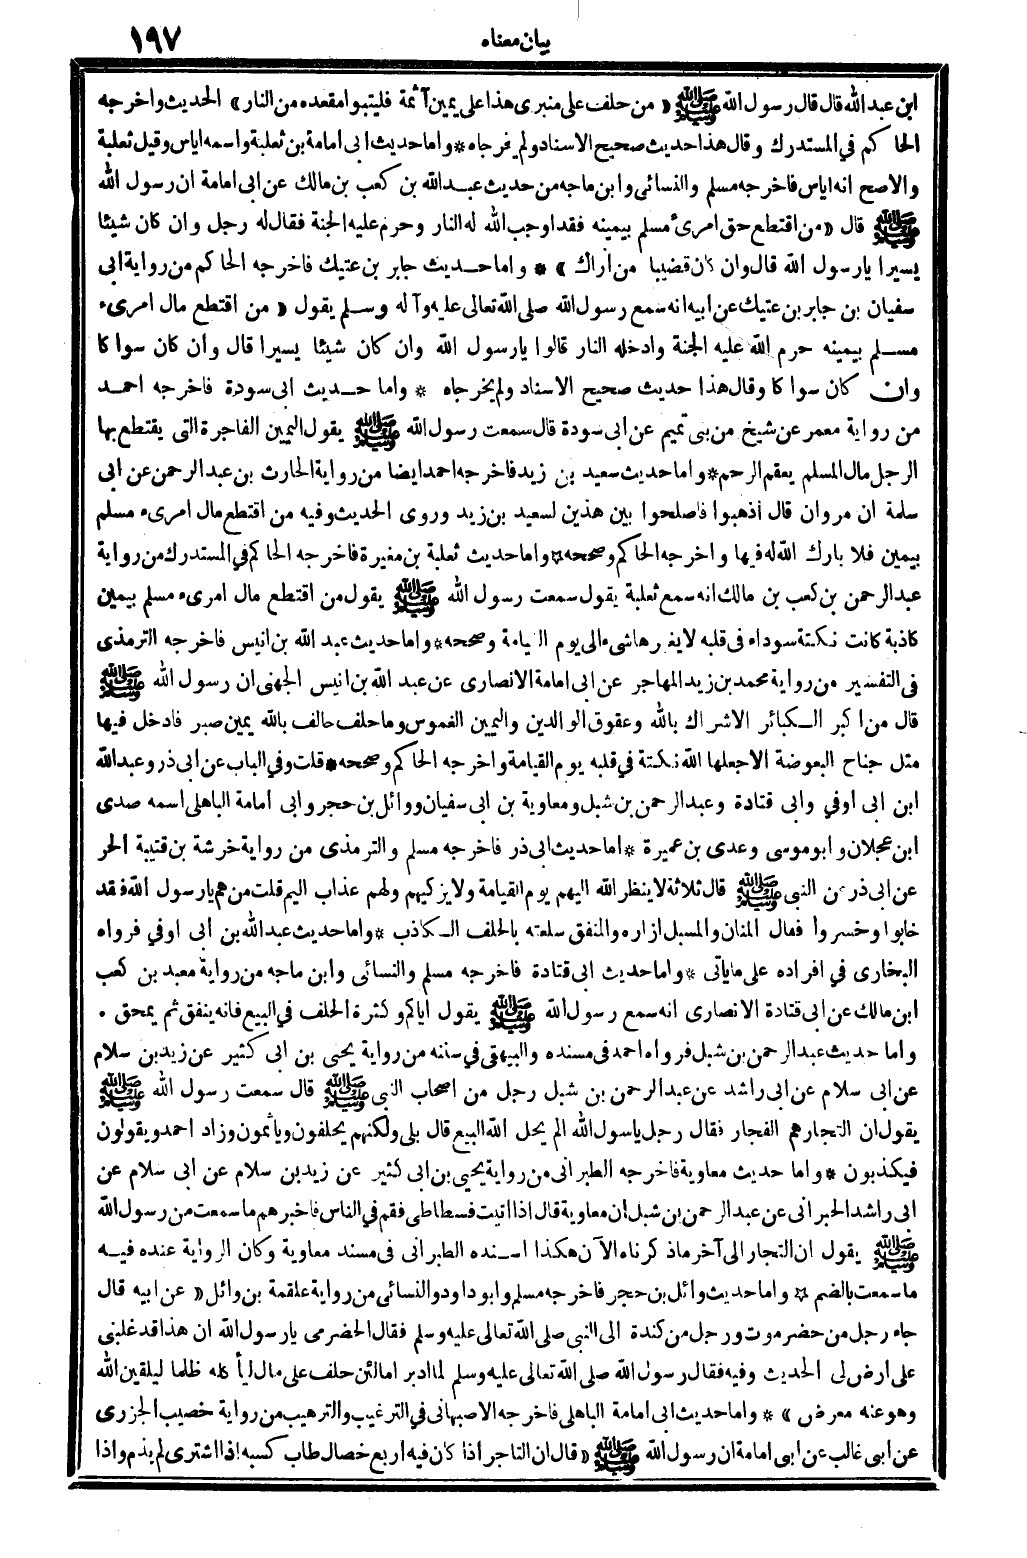 بيان معناه ١٩٧
ابن عبدالله قال قال رسول الله ﷺ « من حلف على منبرى هذا على يمين آثمة فليتبوا مقعده من النار » الحديث واخرجه
الحاكم في المستدرك وقال هذا حديث صحيح الاسناد ولم يخرجاه * واما حديث ابى امامة بن ثعلبة واسمه اياس وقيل ثعلبة
والاصح انه اياس فاخرجه مسلم والنسائى وابن ماجه من حديث عبد الله بن كعب بن مالك عن ابى امامة ان رسول الله
ﷺ قال « من اقتطع حق امرئ مسلم بيمينه فقد اوجب الله له النار وحرم عليه الجنة فقال له رجل وان كان شيئا
يسيرا يارسول الله قال وان كان قضيبا من اراك » * واما حديث جابر بن عتيك فاخرجه الحاكم من رواية ابى
سفيان بن جابر بن عتيك عن ابيه انه سمع رسول الله صلى الله تعالى عليه وآله وسلم يقول « من اقتطع مال امرىء
مسلم بيمينه حرم الله عليه الجنة وادخله النار قالوا يارسول الله وان كان شيئا يسيرا قال وان كان سواكا
وان كان سواكا وقال هذا حديث صحيح الاسناد ولم يخرجاه * واما حديث ابى سودة فاخرجه احمد
من رواية معمر عن شيخ من بنى تميم عن ابى سودة قال سمعت رسول الله ﷺ يقول اليمين الفاجرة التى يقتطع بها
الرجل مال المسلم يعقم الرحم * واما حديث سعيد بن زيد فاخرجه احمد ايضا من رواية الحارث بن عبد الرحمن عن ابى
سلمة ان مروان قال اذهبوا فاصلحوا بين هذين لسعيد بن زيد وروى الحديث وفيه من اقتطع مال امرىء مسلم
بيمين فلا بارك الله له فيها واخرجه الحاكم وصححه * واما حديث ثعلبة بن مغيرة فاخرجه الحاكم في المستدرك من رواية
عبد الرحمن بن كعب بن مالك انه سمع ثعلبة يقول سمعت رسول الله ﷺ يقول من اقتطع مال امرىء مسلم بيمين
كاذبة كانت نكتة سوداء فى قلبه لايغيرها شىء الى يوم القيامة وصححه * واما حديث عبد الله بن انيس فاخرجه الترمذى
فى التفسير من رواية محمد بن زيد المهاجر عن ابى امامة الانصارى عن عبد الله بن انيس الجهنى ان رسول الله ﷺ
قال من اكبر الكبائر الاشراك بالله وعقوق الوالدين واليمين الغموس وما حلف حالف بالله يمين صبر فادخل فيها
مثل جناح البعوضة الا جعلها الله نكتة في قلبه يوم القيامة واخرجه الحاكم وصححه * قلت وفي الباب عن ابى ذر وعبدالله
ابن ابى اوفي وابى قتادة وعبدالرحمن بن شبل ومعاوية بن ابى سفيان ووائل بن حجر وابى امامة الباهلى اسمه صدى
ابن عجلان وابو موسى وعدى بن عميرة * اما حديث ابى ذر فاخرجه مسلم والترمذى من رواية خرشة بن قتيبة الحر
عن ابى ذر عن النبى ﷺ قال ثلاثة لا ينظر الله اليهم يوم القيامة ولا يزكيهم ولهم عذاب اليم قلت من هم يارسول الله فقد
خابوا وخسروا فقال المنان والمسبل ازاره والمنفق سلعته بالحلف الكاذب * واما حديث عبدالله بن ابى اوفي فرواه
البخارى في افراده على ما يأتى * واما حديث ابى قتادة فاخرجه مسلم والنسائى وابن ماجه من رواية معبد بن كعب
ابن مالك عن ابى قتادة الانصارى انه سمع رسول الله ﷺ يقول اياكم وكثرة الحلف في البيع فانه ينفق ثم يمحق *
واما حديث عبد الرحمن بن شبل فرواه احمد فى مسنده والبيهقي في سننه من رواية يحيى بن ابى كثير عن زيد بن سلام
عن ابى سلام عن ابى راشد عن عبدالرحمن بن شبل رجل من اصحاب النبى ﷺ قال سمعت رسول الله ﷺ
يقول ان التجار هم الفجار فقال رجل يا سول الله الم يحل الله البيع قال بلى ولكنهم يحلفون ويأثمون وزاد احمد ويقولون
فيكذبون * واما حديث معاوية فاخرجه الطبرانى من رواية يحيى بن ابى كثير عن زيد بن سلام عن ابى سلام عن
ابى راشد الحبرانى عن عبد الرحمن بن شبل ان معاوية قال اذا اتيت فسطاطى فقم في الناس فاخبرهم ما سمعت من رسول الله
ﷺ يقول ان التجار الى آخر ماذكرناه الآن هكذا اسنده الطبرانى فى مسند معاوية وكان الرواية عنده فيه
ما سمعت بالضم * واما حديث وائل بن حجر فاخرجه مسلم وابو داود والنسائى من رواية علقمة بن وائل « عن ابيه قال
جاء رجل من حضرموت ورجل من كندة الى النبى صلى الله تعالى عليه وسلم فقال الحضرمى يارسول الله ان هذا قد غلبنى
على ارض لى الحديث وفيه فقال رسول الله صلى الله تعالى عليه وسلم لما ادبر اما لئن حلف على مال ليأكله ظلما ليلقين الله
وهو عنه معرض » * واما حديث ابى امامة الباهلى فاخرجه الاصبهانى في الترغيب والترهيب من رواية خصيب الجزرى
عن ابى غالب عن ابى امامة ان رسول الله ﷺ « قال ان التاجر اذا كان فيه اربع خصال طاب كسبه اذا اشترى لم يذم واذا